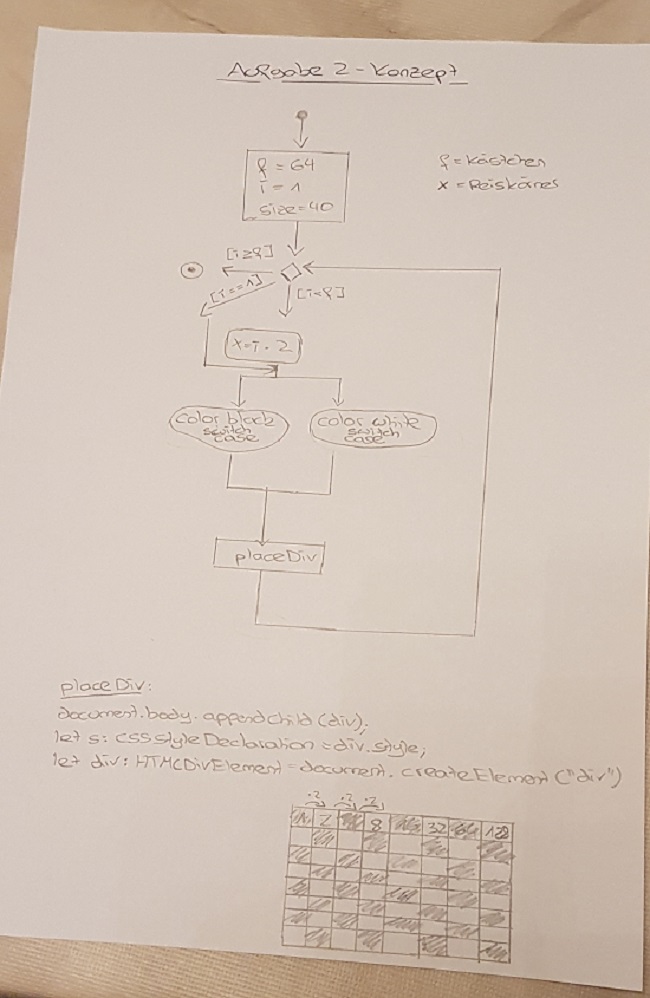 Aufgabe 2 - Konzept
f = 64
i = 1
size = 40
f = Kästchen
x = Reiskörner
[i≥f]
[i==1]
[i<f]
x=i·2
color black
switch
case
color white
switch
case
placeDiv
placeDiv:
document.body.appendChild(div);
let s: CSSStyleDeclaration = div.style;
let div: HTMLDivElement = document.createElement("div")
·2 ·2 ·2
1 2 8 32 128